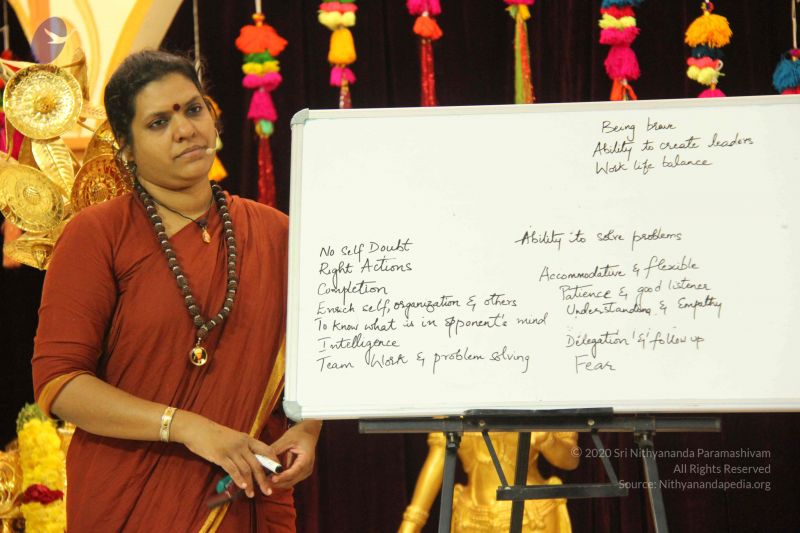 Being brave
Ability to create leaders
Work life balance
Ability to solve problems
No Self Doubt
Right Actions
Completion
Enrich self, organization & others
To know what is in opponent's mind
Intelligence
Team Work & problem solving
Accommodative & flexible
Patience & good listener
Understanding & Empathy
Delegation & follow up
Fear
© 2020 Sri Nithyananda Paramashivam
All Rights Reserved
Source: Nithyanandapedia.org